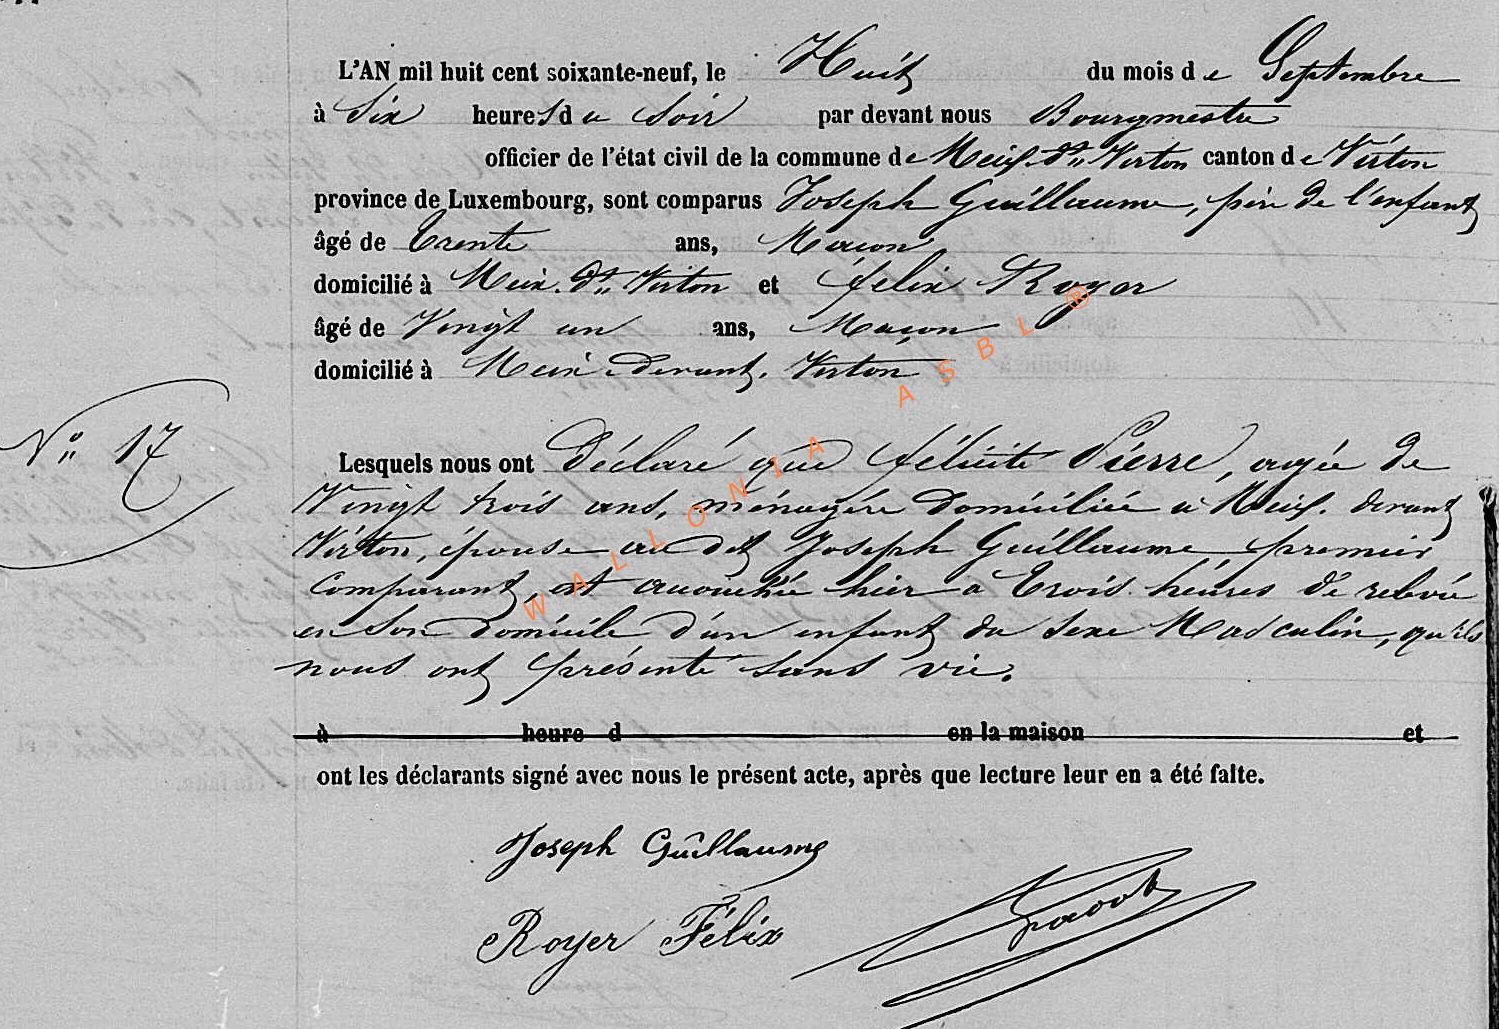 L'AN mil huit cent soixante-neuf, le Huit du mois de Septembre
à Six heures du Soir par devant nous Bourgmestre
officier de l'état civil de la commune de Meix dt Virton canton de Virton
province de Luxembourg, sont comparus Joseph Guillaume, père de l'enfant
âgé de Trente ans, Maçon
domicilié à Meix dt Virton et félix Royer
âgé de Vingt un ans, Maçon
domicilié à Meix devant Virton
N° 17
Lesquels nous ont Déclaré que félicité Pierre, agée de
Vingt trois ans, ménagère domiciliée à Meix devant
Virton, épouse au dit Joseph Guillaume premier
Comparant, est accouchée hier a Trois heures de relevée
en Son domicile d'un enfant du sexe Masculin, qu'ils
nous ont présenté sans vie.
à heure d en la maison et
ont les déclarants signé avec nous le présent acte, après que lecture leur en a été faite.
Joseph Guillaume
Royer Félix
WALLONIA ASBL ®